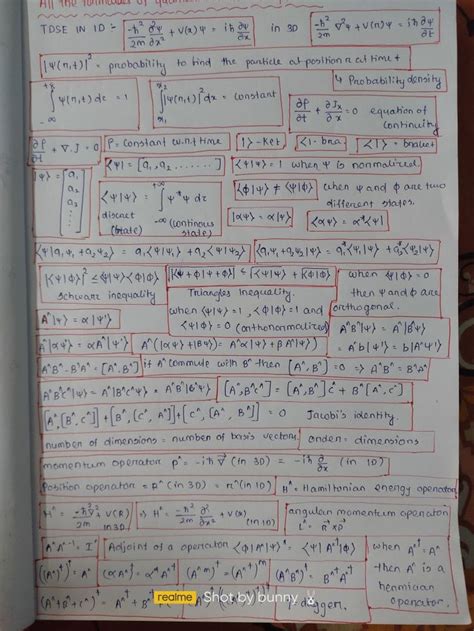 All the formulaes of quantum
TDSE IN 1D :- -ħ²/2m ∂²ψ/∂x² + V(x)ψ = iħ ∂ψ/∂x in 3D -ħ²/2m ∇²ψ + V(r)ψ = iħ ∂ψ/∂t
|ψ(r,t)|² = probability to find the particle at position r at time t
↳ Probability density
∫ψ(r,t) dτ = 1 ∫|ψ(r,t)|² dx = constant ∂ρ/∂t + ∂Jx/∂x = 0 equation of continuity
∂ρ/∂t + ∇.J = 0 P = constant w.r.t time | > - ket < | - bra < | > - braket
|ψ> = [a₁ a₂ a₃ ...] <ψ| = [a₁, a₂ .......] <ψ|ψ> = 1 when ψ is normalized
<ψ|ψ> = ∫ψ*ψ dτ <φ|ψ> ≠ <ψ|φ> when ψ and φ are two different states.
discret (state) (continous state) |αψ> = α|ψ> <αψ| = α*<ψ|
<ψ|a₁ψ₁ + a₂ψ₂> = a₁<ψ|ψ₁> + a₂<ψ|ψ₂> <a₁ψ₁ + a₂ψ₂|ψ> = a₁*<ψ₁|ψ> + a₂*<ψ₂|ψ>
|<ψ|φ>|² ≤ <ψ|ψ><φ|φ> √<ψ+φ|ψ+φ> ≤ √<ψ|ψ> + √<φ|φ> when <ψ|φ> = 0
schwarz inequality Triangles Inequality. then ψ and φ are orthogonal.
A^|ψ> = α|ψ'> when <ψ|ψ> = 1, <φ|φ> = 1 and <ψ|φ> = 0 (orthonormalized)
A^|αψ> = α A^|ψ> A^(α|ψ> + |βψ>) = αA^|ψ> + βA^|ψ>) A^B^|ψ> = A^|B^ψ>
A^B^ - B^A^ = [A^, B^] if A^ commute with B^ then [A^, B^] = 0 => A^B^ = B^A^
A^B^C^|ψ> = A^|B^C^ψ> = A^B^|C^ψ> [A^, B^C^] = [A^, B^]C^ + B^[A^, C^]
[A^, [B^, C^]] + [B^, [C^, A^]] + [C^, [A^, B^]] = 0 Jacobi's identity.
number of dimensions = number of basis vectors, order = dimensions
momentum operator P^ = -iħ ∇ (in 3D) = -iħ ∂/∂x (in 1D)
Position operator = R^ (in 3D) = x^ (in 1D) H^ = Hamiltonian energy operator
H^ = -ħ²/2m ∇² + V(R) in 3D => H^ = -ħ²/2m ∂²/∂x² + V(x) (in 1D) angular momentum operator L^ = R^ x P^
A^A^⁻¹ = I^ Adjoint of a operator <φ|A^|ψ>* = <ψ|A^†|φ> when A^† = A^
(A^†)† = A^ (αA^)† = α*A^† (A^ᵐ)† = (A^†)ᵐ (A^B^)† = B^†A^† then A^ is a hermitian operator.
(A^ + B^ + C^)† = A^† + B^† †-daggen.
realme Shot by bunny